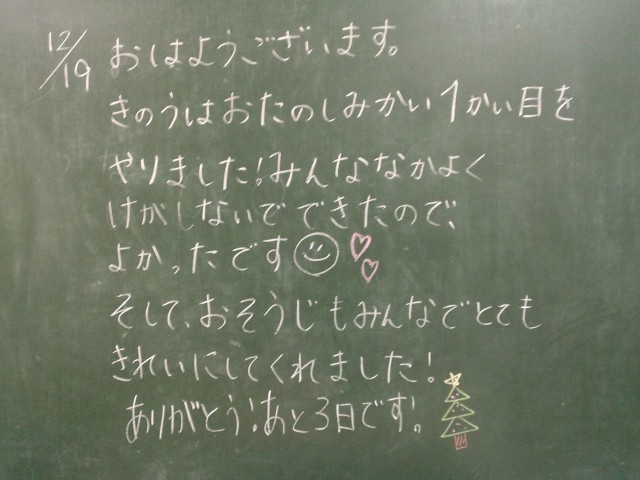 12/19 おはようございます。
きのうはおたのしみかい1かい目を
やりました!みんななかよく
けがしないでできたので、
よかったです
そして、おそうじもみんなでとても
きれいにしてくれました!
ありがとう!あと3日です!。